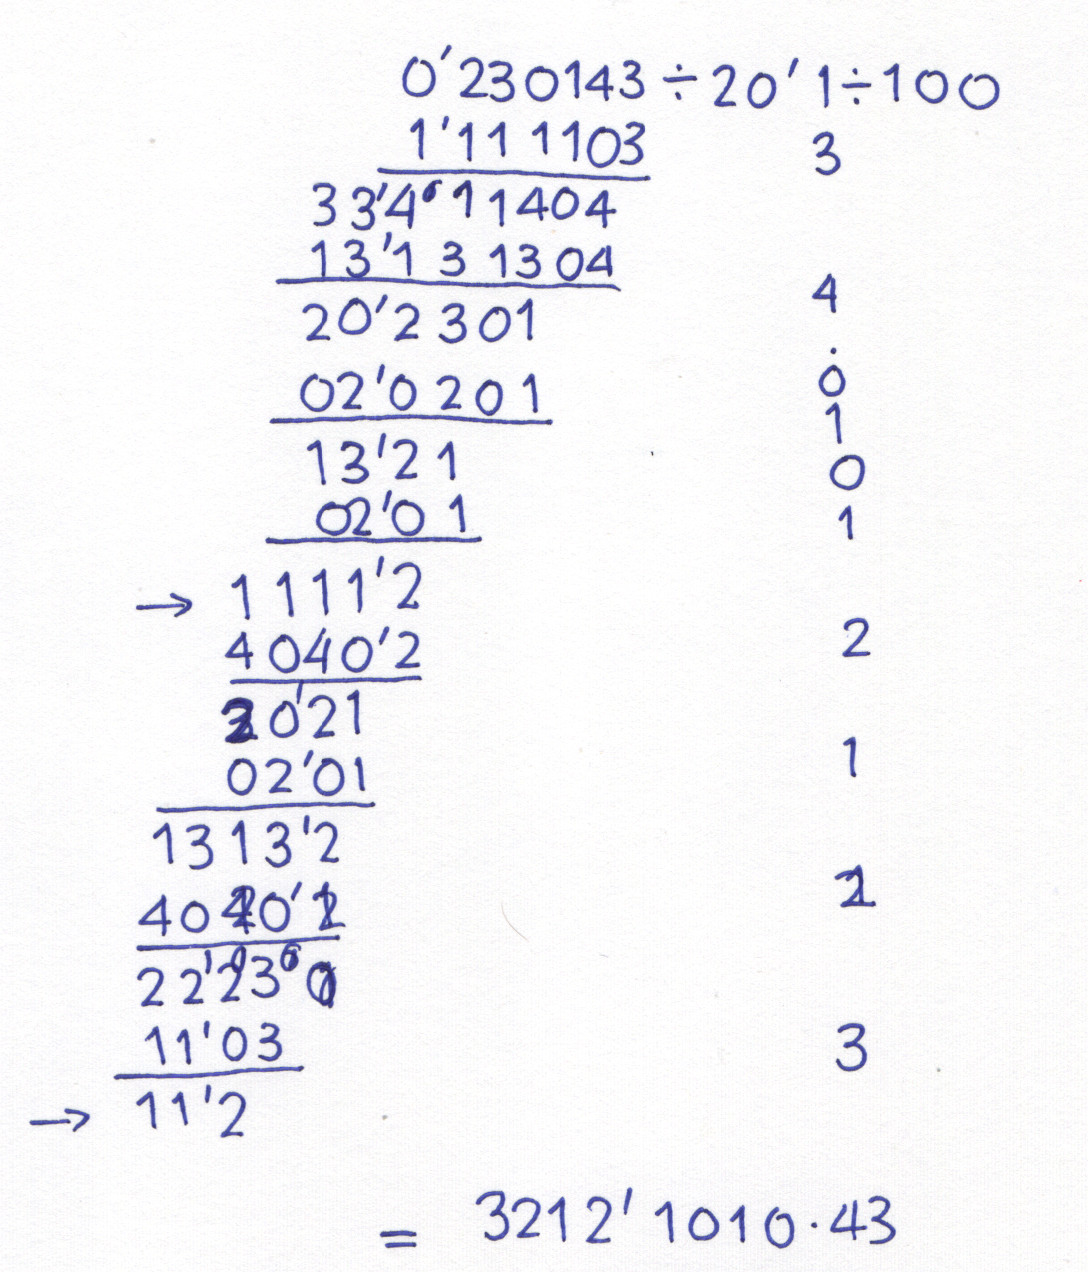 0'230143÷20'1÷100
1'111103 3
33'411404
13'131304 4
20'2301
.
02'0201 0
1
13'21 0
02'01 1
→ 1111'2
4040'2 2
20'21
02'01 1
1313'2
22'23
11'03 3
→ 11'2
= 3212'1010.43